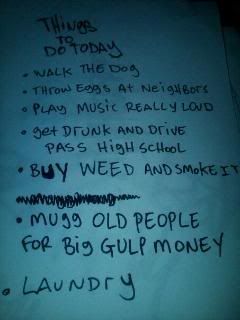 Things
TO
DO TODAY
• WALK THE DOG
• THROW EGGS AT NeigHBORS
• PLAY MUSIC REALLY LOUD
• get DRUNK AND DRIVE
PASS HIGH SCHOOL
• BUY WEED AND SMOKE IT
• MUGG OLD PEOPLE
FOR Big GULP MONEY
• LAUNDRY